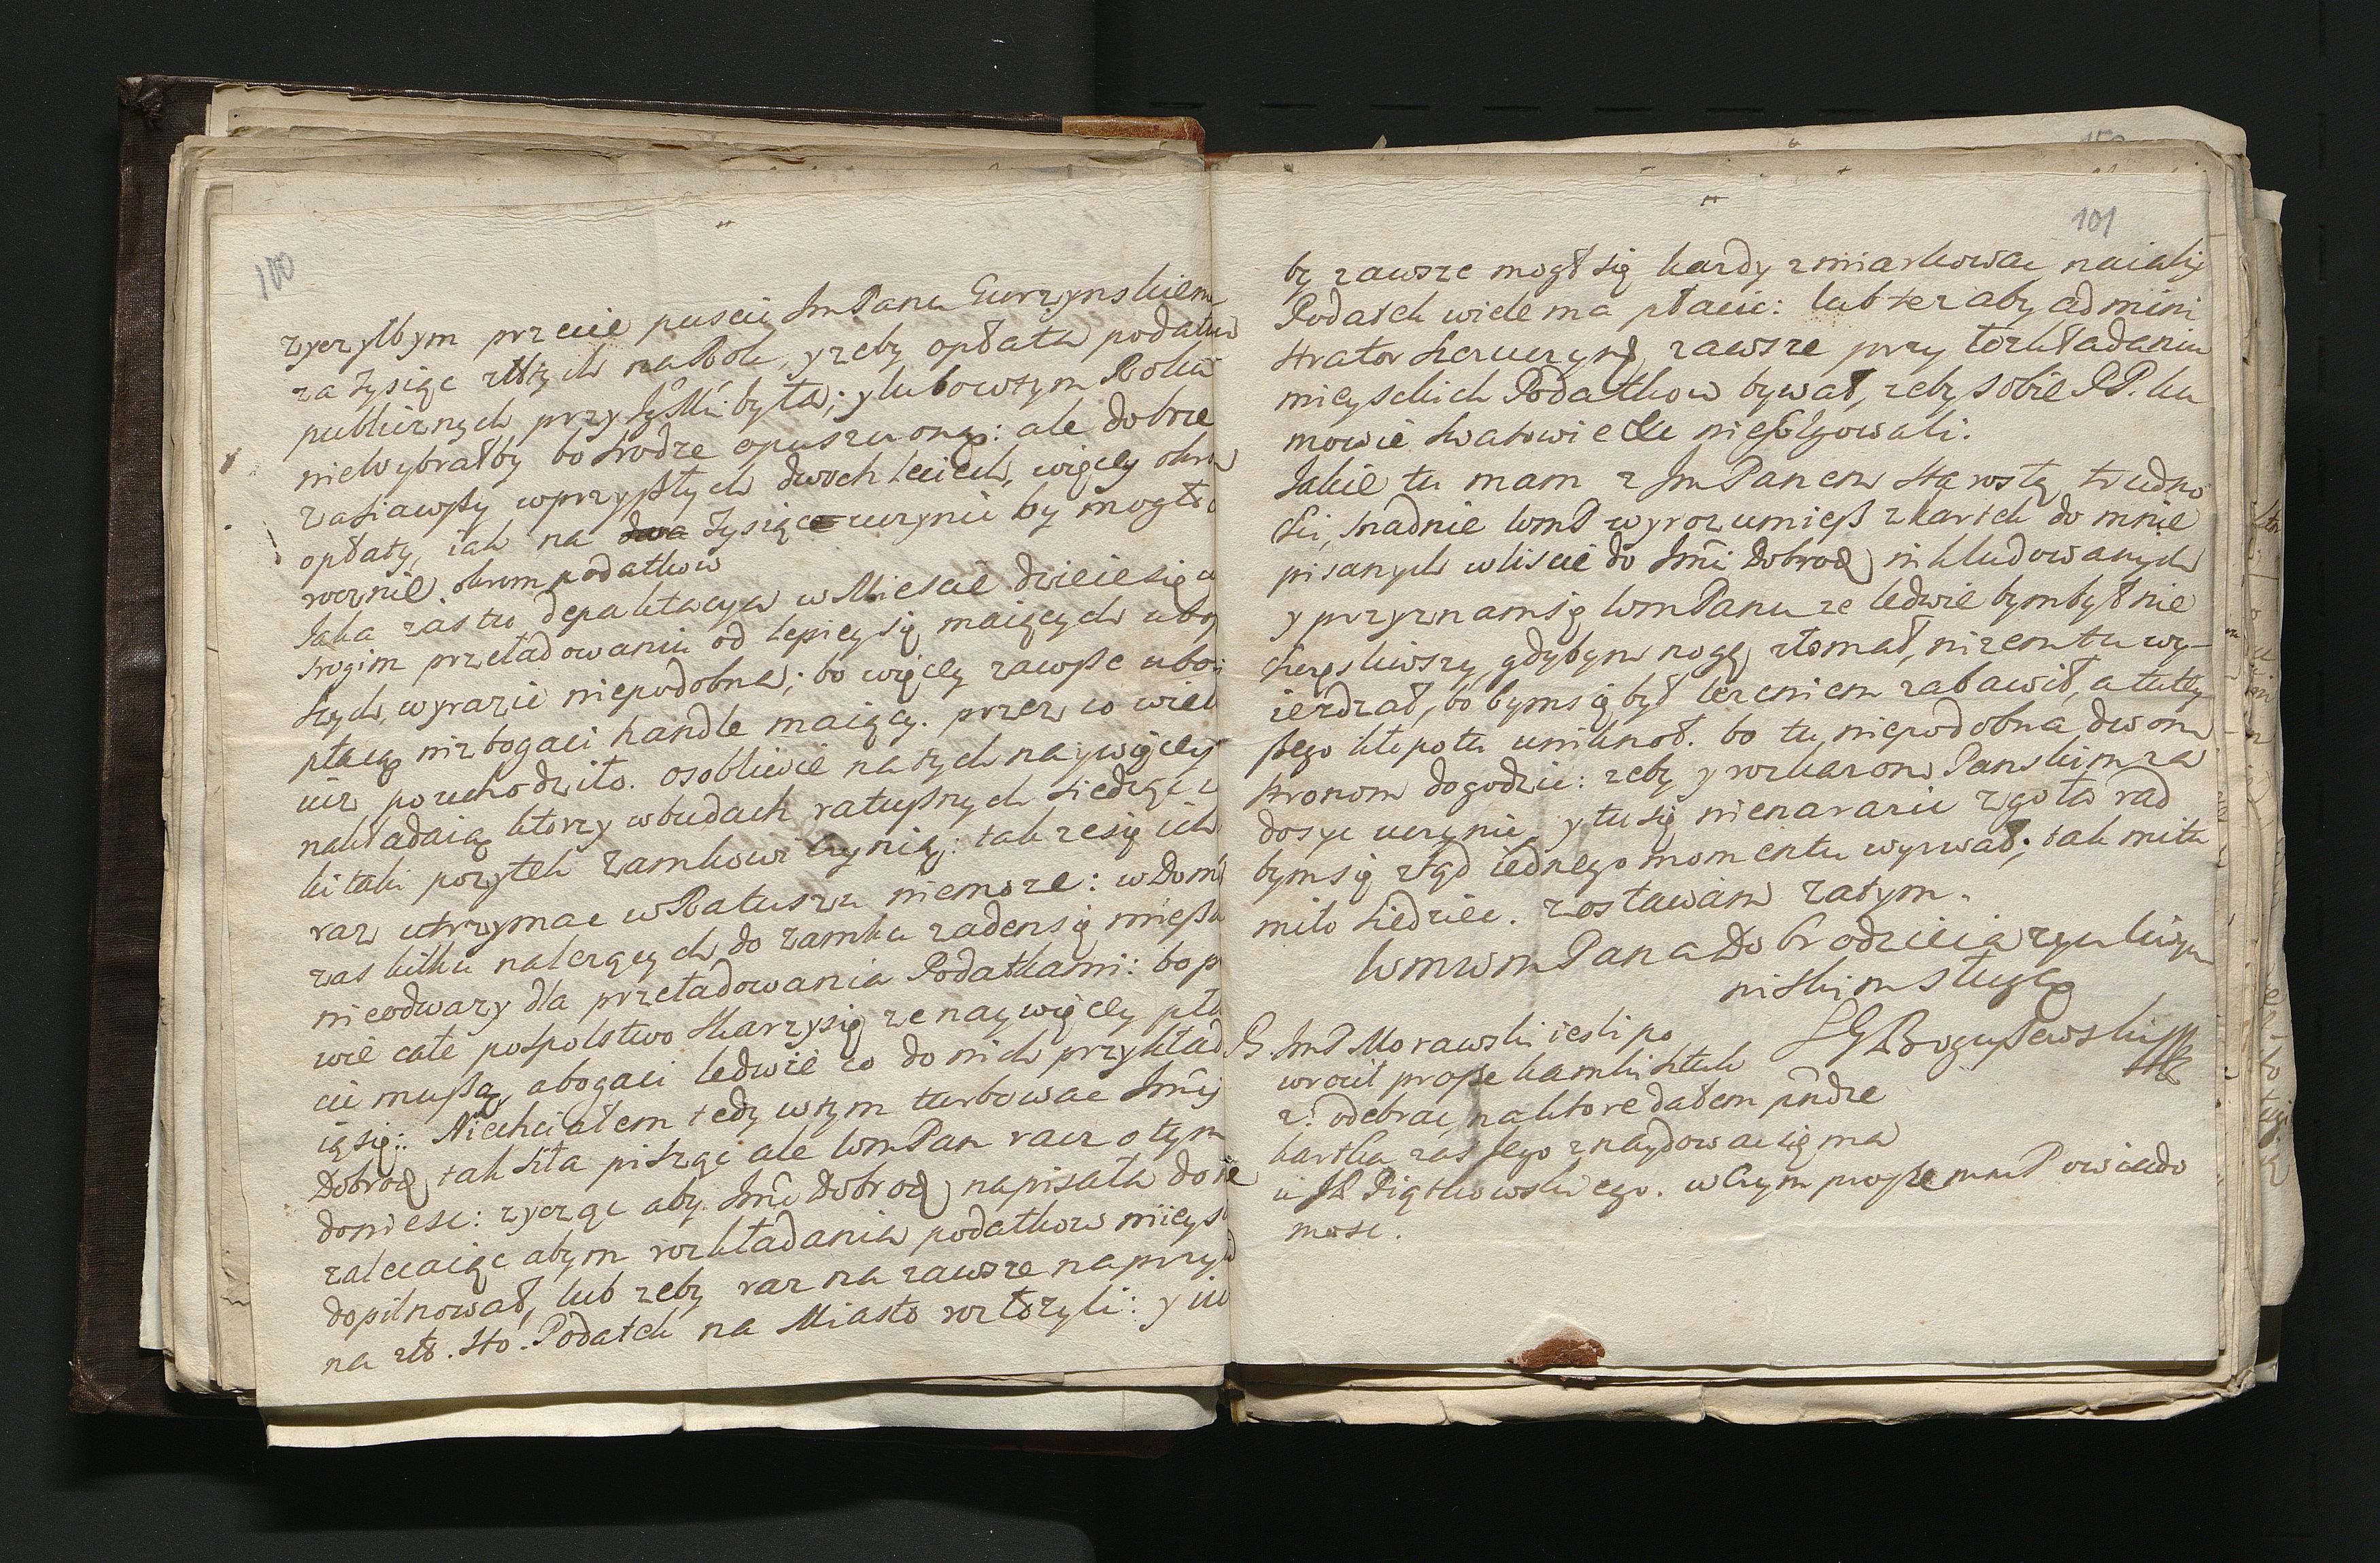 100
zyczylbym przecie puscic Jm Panu Gurzynskiem
za tysiąc złłtych na Rok, y zeby opłata podatkow
publicznych przy Jmści była; y lubo w tym Roku
nie wybrałby bo srodze opuszczona: ale dobrze
zasiawszy w przyszłych dwoch leciech, więcey okrom
opłaty, iak na dwa tysiące uczynic by mogło
rocznie okrom podatkow
Jaka zas tu depaktacya w Miescie dzieie się w
srogim przeładowaniu od lepiey się maiących uboż
szych, wyrazic niepodobna; bo więcey zawsze ubo
płacą niz bogaci handle maiący. przez co wiel
iuz pouchodziło. osobliwie na tych naywięcey
nakładaią ktorzy w budach ratusznych siedząc
ki taki pozytek zamkowi czynią: tak ze się ich
raz utrzymac w Ratuszu niemoze: w Dom
zas kilku nalezących do zamku zaden się miesz
nieodwazy dla przeładowania Podatkami: bo p
wie całe pospolstwo skarzy się ze naywięcey pła
cic muszą, a bogaci ledwie co do nich przykład
ią się: Niechciałem tedy w tym turbowac Jmści
Dobrodź tak siła pisząc ale WmPan racz o tym
doniesc: zycząc aby Jmść Dobrodź napisała do
zalecaiąc abym rozkładania podatkow mieys
dopilnował, lub zeby raz na zawsze naprzyd
na złł. sto. Podatek na Miasto rozłozyli: y iu
101
by zawsze mogł się kazdy zmiarkowac na iaki
Podatek wiele ma płacic: lub tez aby admini
strator zawsze przy rozkładaniu
mieyskich Podatkow bywał, zeby sobie PP. ku
mowie swatowie niefolgowali.
Jakie tu mam z Jm Panem Starostą trudno
sci, snadnie WmP wyrozumiesz z kartek do mnie
pisanych w liscie do Jmści Dobrodź inkludowanych
y przyznam się WmPanu ze ledwie bym był nie
szczęsliwszy, gdybym nogę złomał, nizem tu wy-
iezdzał, bo bym się był leczeniem zabawił, a tuty
szego kłopotu uniknoł. bo tu niepodobna dwom
stronom dogodzic: zeby y rozkazom Panskim za
dosyc uczynic, y tu się nienarazic zgoła rad
bym się ztąd iednego momentu wyrwał; tak miłu
miło siedziec. zostawam zatym.
WmwmPana Dobrodzieia zyczliwym
niskim sługą
SGBoguszewski
PS JmP Morawski iesli po
wrocił proszę kamki sztuk
2? odebrac, na ktore dałem pndze
kartka zas Jego znaydowac się ma
u JP Piątkowskiego. w czym proszę mnP owiado
mosc.